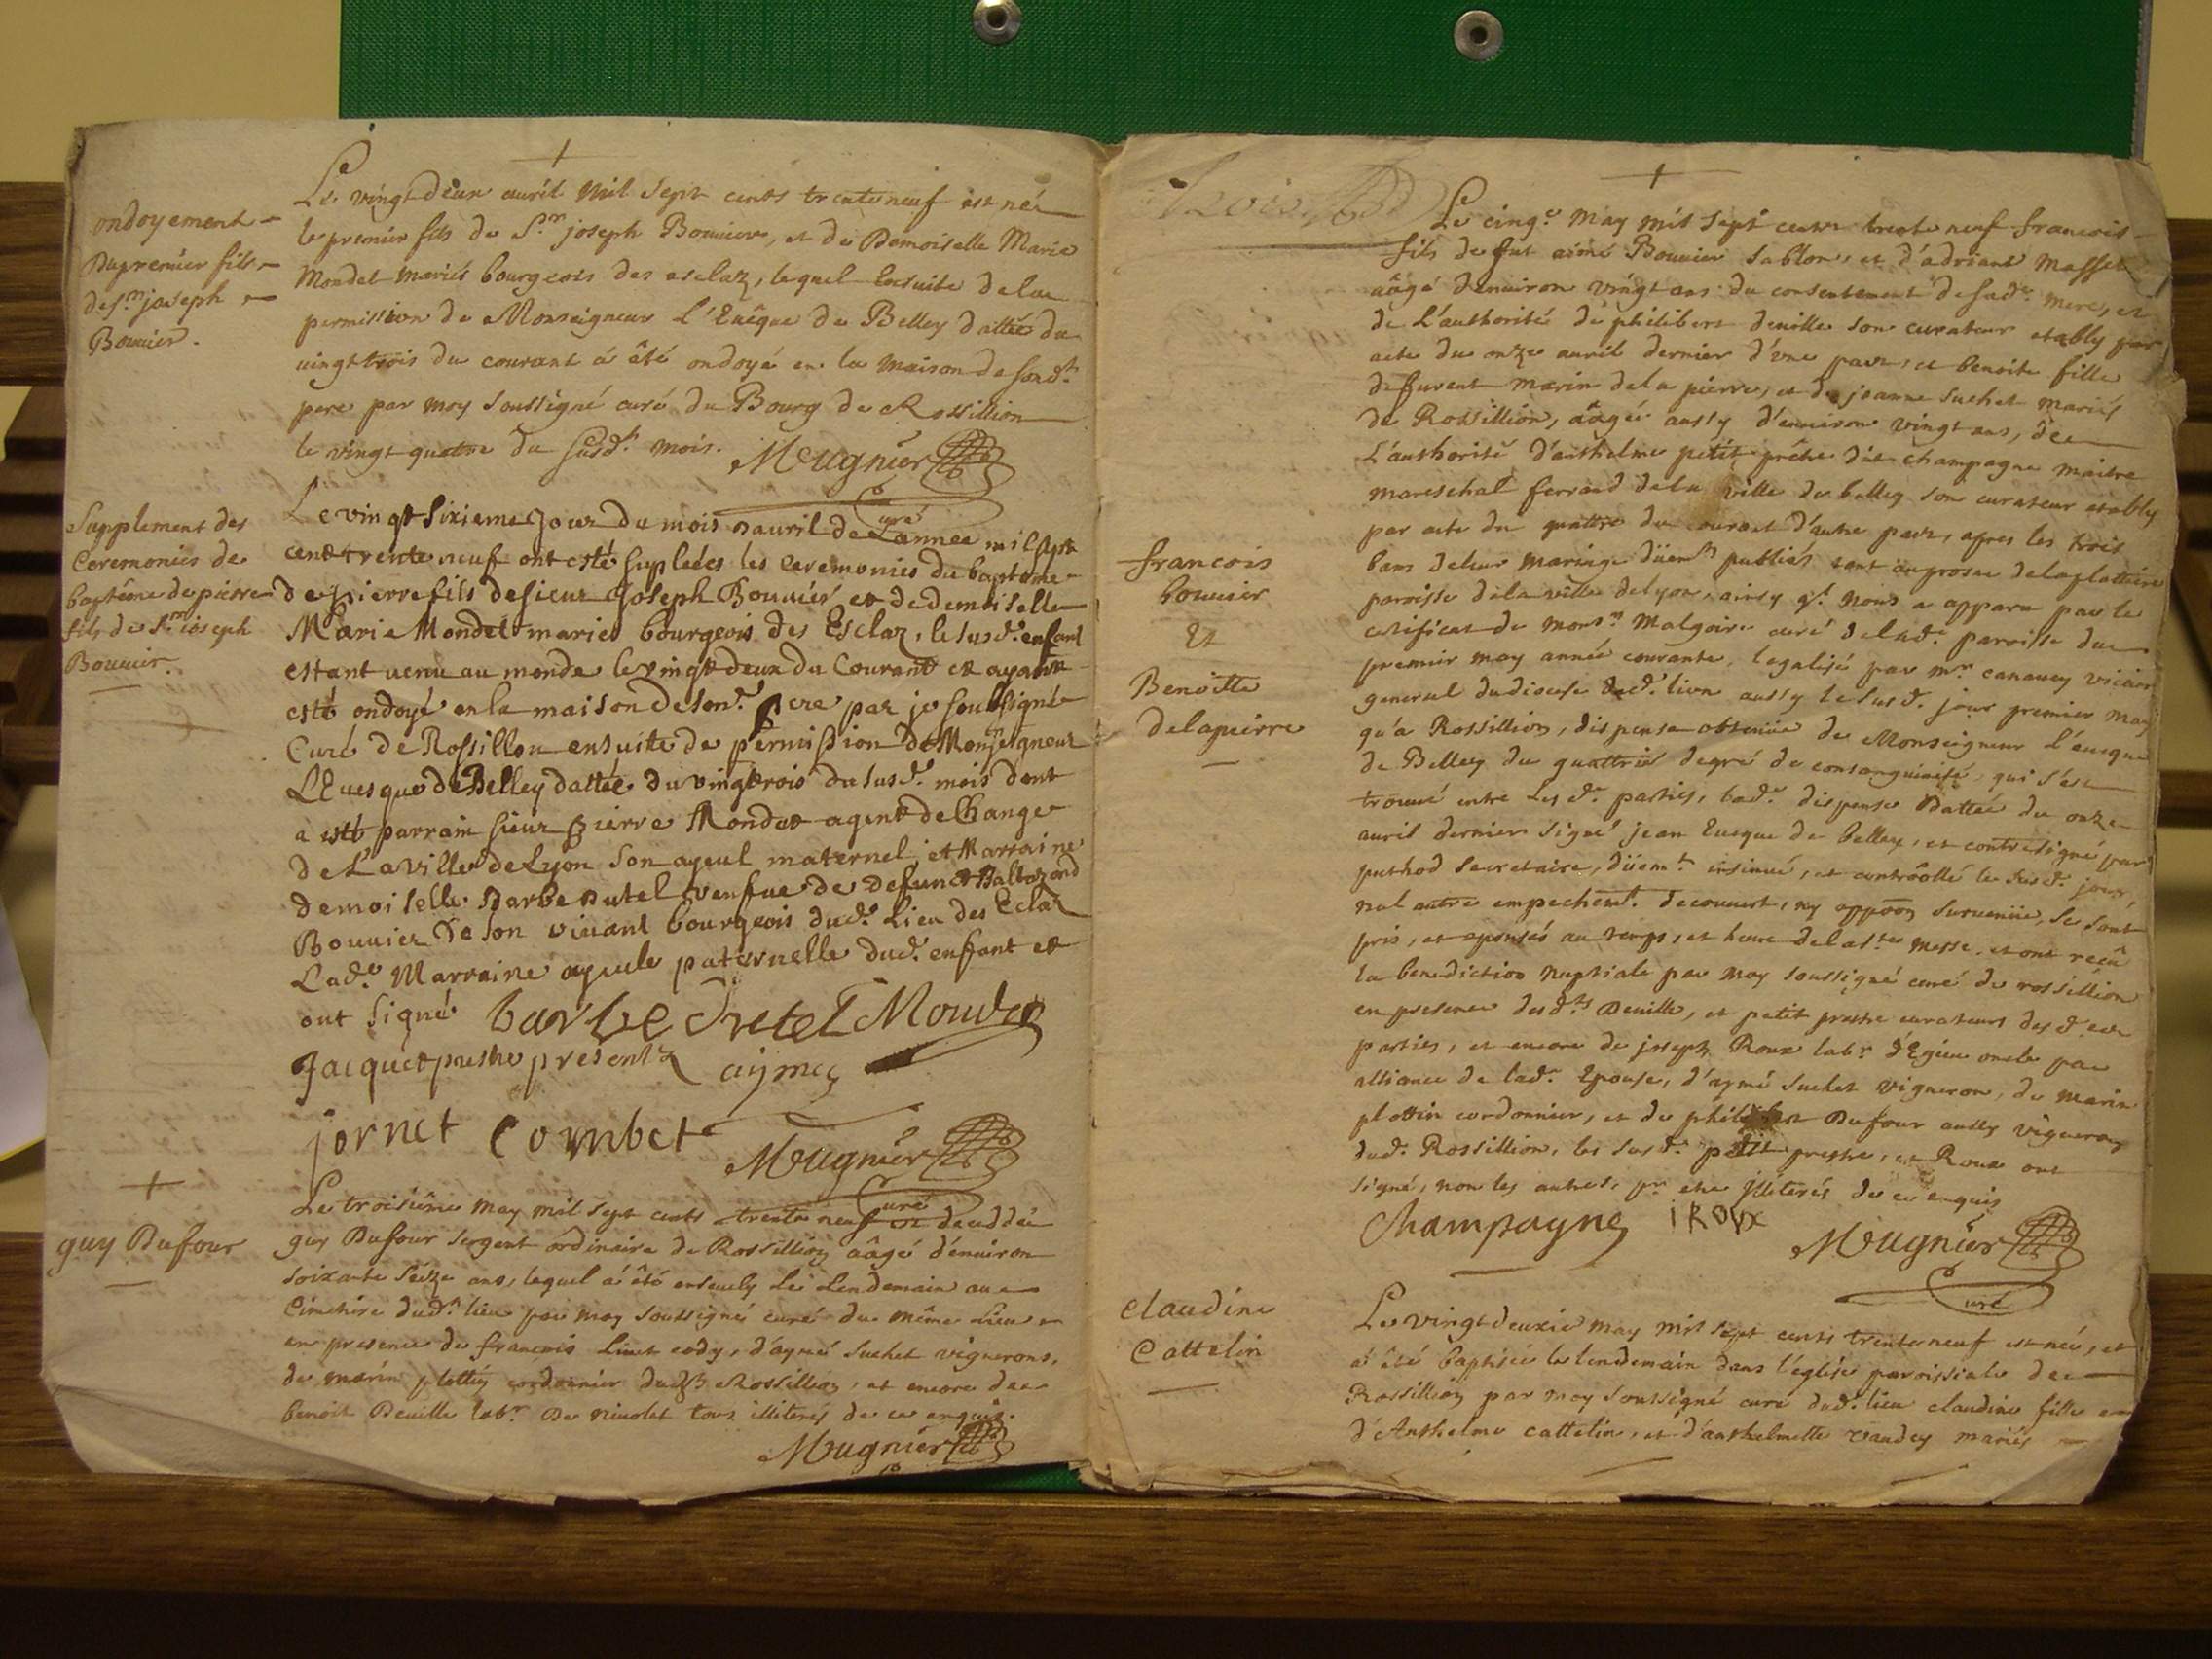 ondoyement
Du premier fils
de Sr joseph
Bouuier.
Le vingt deux auril mil sept cents trente neuf est né
le premier fils de Sr joseph Bouuier, et de Demoiselle Marie
Mondet mariés bourgeois des esclaz, lequel Ensuite de la
permission de Monseigneur L'Euêque de Belley dattée du
uingt trois du courant á êté ondoyé en la maison de sond.t
pere par moy soussigné curé du Bourg de Rossillion
le vingt quatre du susd.t mois. Meugnier
curé
Supplement des
Ceremonies de
baptême de pierre
fils de Sr joseph
Bouuier.
Le vingt Sixieme Jour du mois dauril de Lannee mil sept
cent trente neuf ont esté supleées les ceremonies du bapteme
de pierre fils de sieur Joseph Bouuier et de demoiselle
Marie Mondet mariés bourgeois des Esclaz, le susd.t enfant
estant uenu au monde le vingt deux du Courant et ayant
esté ondoyé en la maison de son d.t pere par je soubsigné
Curé de Rossillon ensuite de permission de Monseigneur
L'Euesque de Belley dattée du vingt trois du susd.t mois dont
a esté parrain sieur pierre Mondet agent de Change
de La ville de Lyon son ayeul maternel et Marraine
demoiselle Barbe Dutel veufue de defunct Baltazard
Bouuier de son viuant bourgeois dud.t Lieu des Eclaz
Lad.e Marraine ayeule paternelle dud.t enfant et
ont signé barbe Dutel Mondet
Jacquet prestre present aymey
jornet Combet
Meugnier
curé
guy Dufour
Le troisiême may mil sept cents trente neuf est deceddé
guy Dufour sergent ordinaire de Rossillion aâgé d'enuiron
soixante seize ans, lequel á êté enseuely Le Lendemain au
Cimetire dud.t lieu par moy soussigné curé du même Lieu
en presence de francois cody, d'aymé suchet vignerons,
de marin plottin cordonnier dud.t Rossillion, et encore de
benoit Deuille labr. de tous illiterés de ce enquis.
Meugnier
francois
bouuier
Et
Benoitte
delapierre
Le cinq.e May mil sept cents trente neuf francois
fils de fut aimé Bouuier sablon, et d'adriane Masset
aâgé d'enuiron vingt ans du consentement de sad.e mere, et
de L'authorité de philibert deuille son curateur etably par
acte du onze auril dernier d'vne part, et benoite fille
de furent marin dela pierre, et de jeanne suchet mariés
de Rossillion, aâgée aussy d'enuiron vingt ans, de
L'authorité d'anthelme petit prêtre dit champagne maitre
mareschal ferrand de la ville de belley son curateur etably
par acte du quattre du courant d'autre part, apres les trois
bans de leur mariage düem.t publiés tant au prosne de la plattiere
paroisse de la ville de lyon, ainsy q.l nous a apparu par le
certificat de mons.r Malgoire curé de lad.e paroisse du
premier may année courante, legalisé par mr. vicaire
general du diocese dud.t lion aussy le susd.t jour premier may
qu'a Rossillion, dispense obtenüe de Monseigneur L'eueque
de Belley du quattrié degré de consanguinité, qui s'est
trouué entre Les d.es parties, lad.e dispense dattée du onze
auril dernier signé jean Eueque de belley, et contresigné par
puthod secretaire, düem.t insinué, et contrôollé le susd.t jour
nul autre empechem.t decouuert, ny oppoon suruenüe, se sont
pris, et epousés au temps, et heure de la s.te messe, et ont reçû
la benediction nuptiale par moy soussigné curé de rossillion
en presence desd.ts Deuille, et petit prestre curateurs des d.es
parties, et encore de joseph Roux labr. d'Egieu oncle par
alliance de lad.e Epouse, d'aymé suchet vigneron, de marin
plottin cordonnier, et de philibert Dufour aussy vigneron
dud.t Rossillion, les susd.ts petit prestre, et Roux ont
signé, non les autres, pr. etre illiterés de ce enquis
Champagne IROVX
Meugnier
curé
Claudine
Cattelin
Le vingt deuxié may mil sept cents trente neuf est née, et
a été baptisée le lendemain dans l'eglise paroissiale de
Rossillion par moy soussigné curé dud.t lieu claudine fille
d'Anthelme cattelin, et d'anthelmette vandey mariés